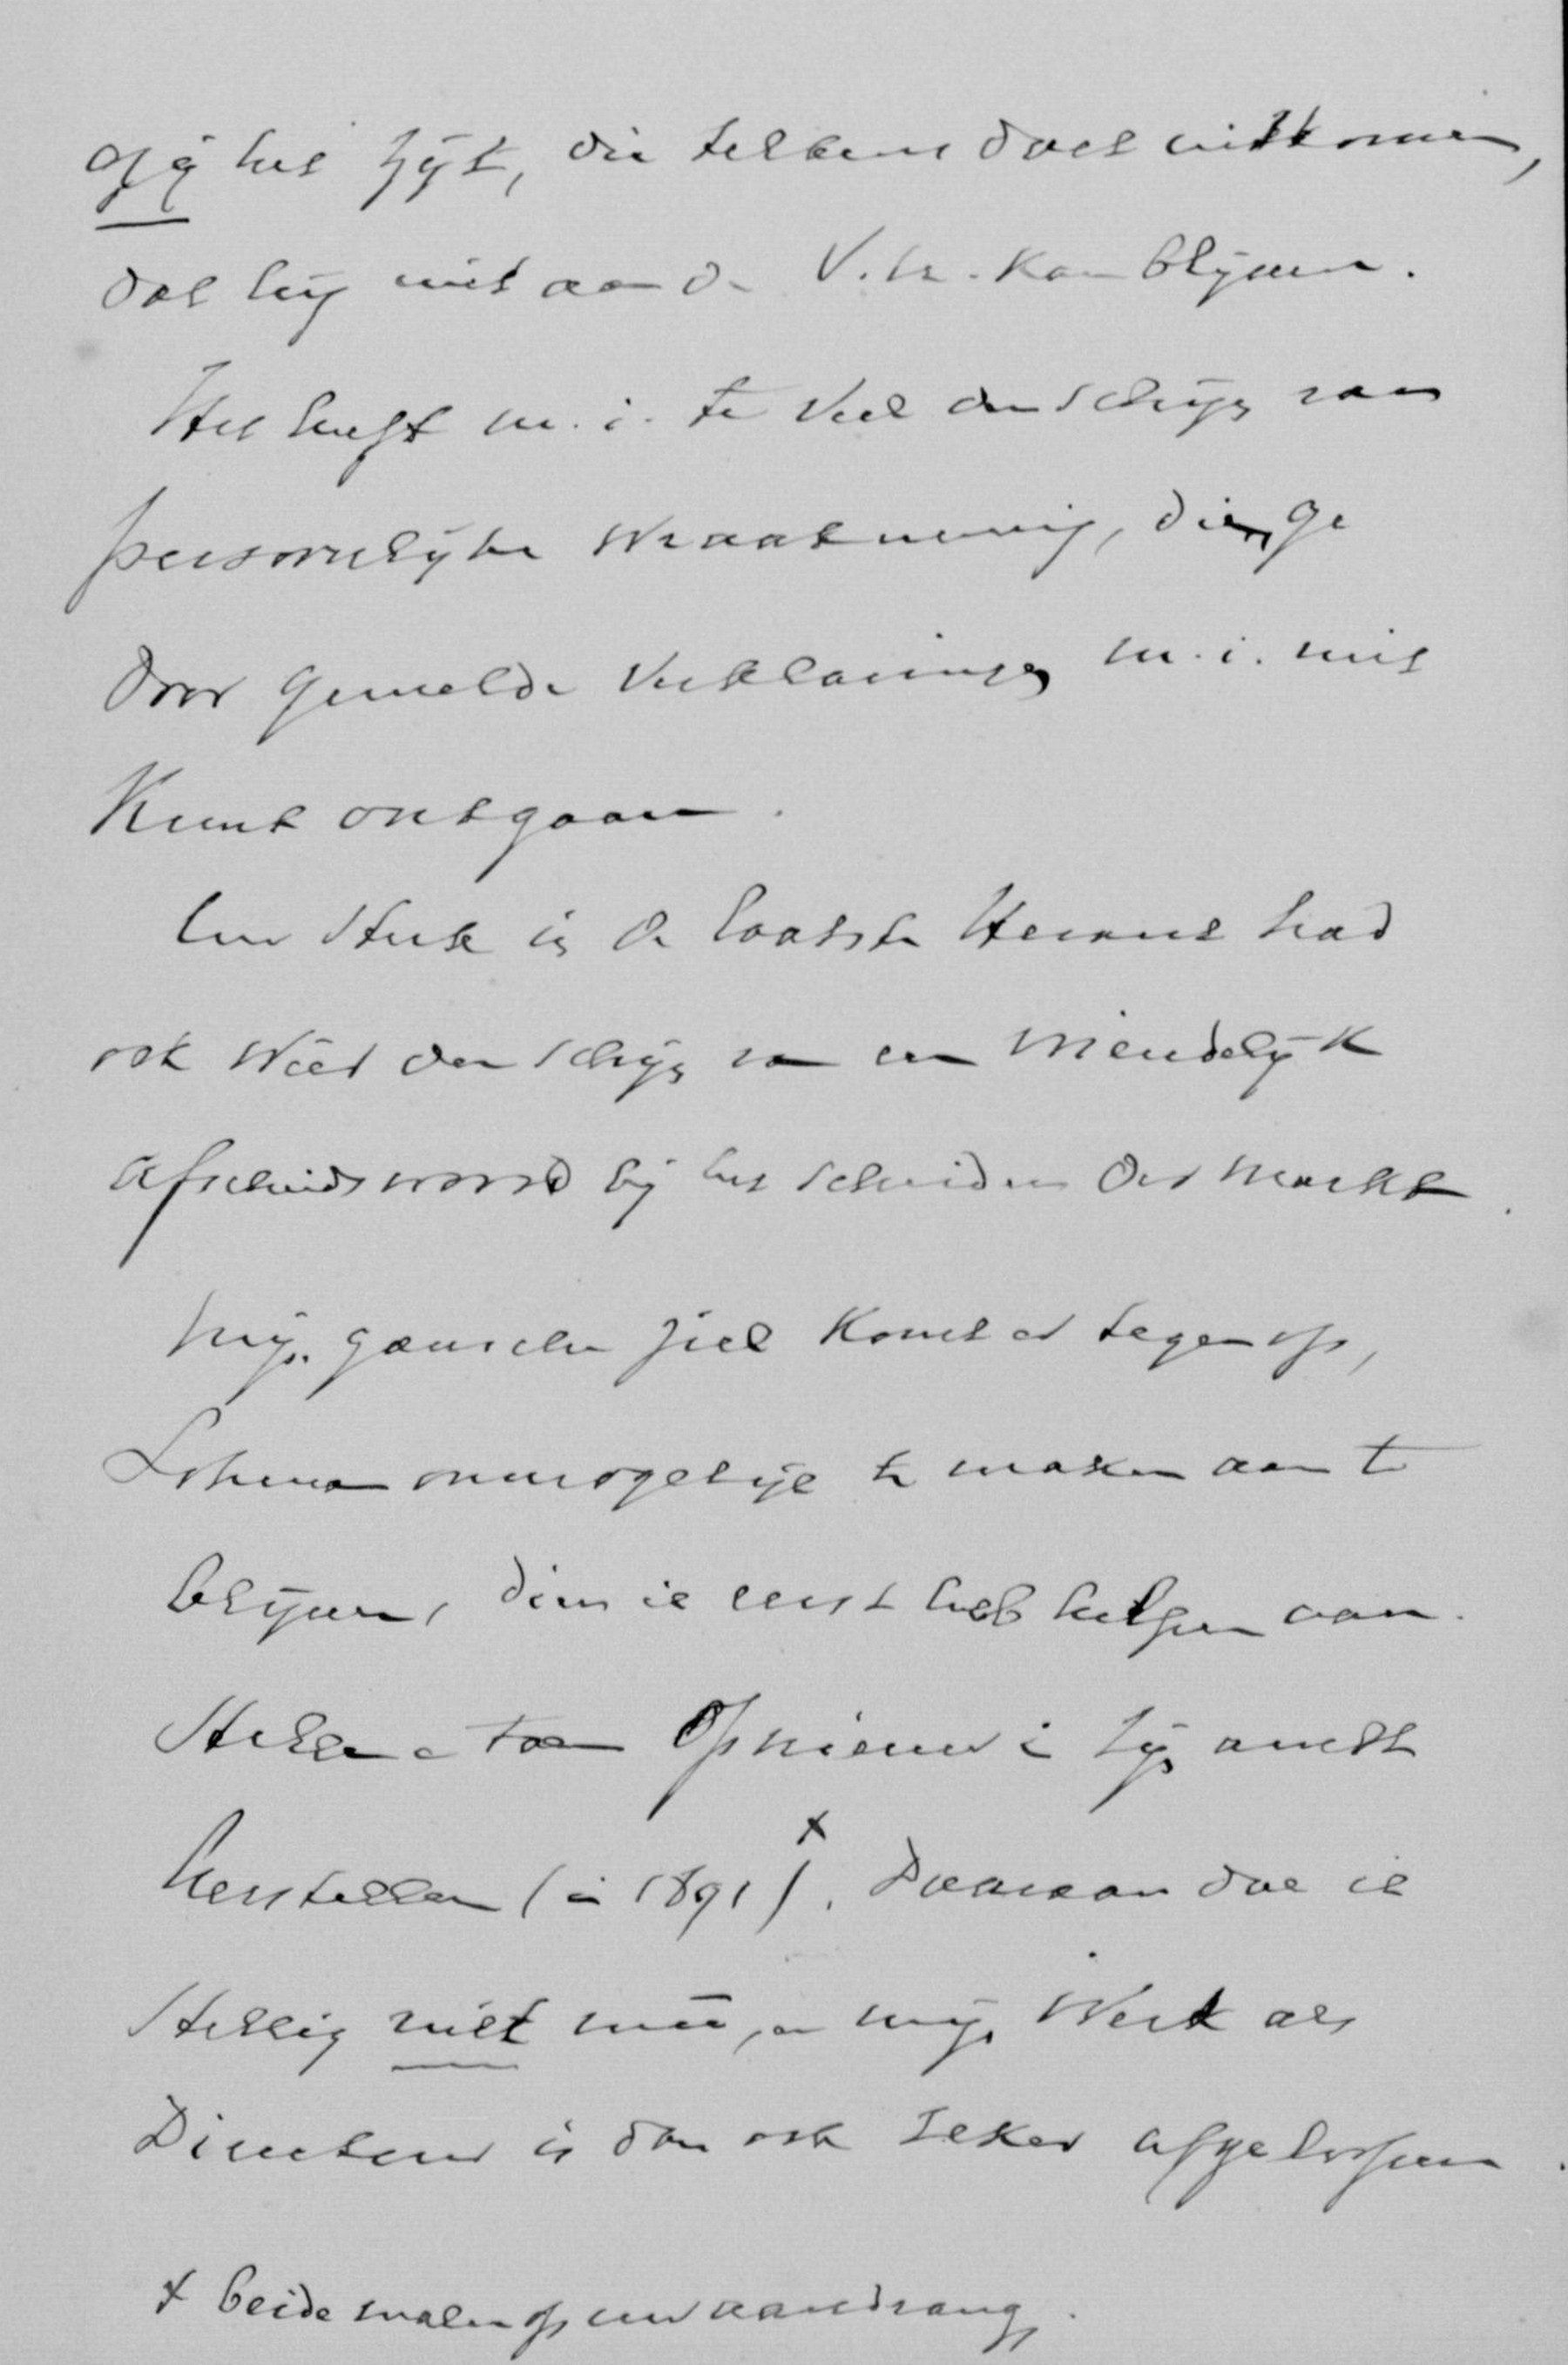 gij het zijt, die telkens doet uitkomen,
dat hij niet aan de V.U. kan blijven.
Het heeft m.i. te veel den schijn van
persoonlijke wraakneming, dien ge
door gemelde verklaringen m.i. niet
kunt ontgaan.
Uw stuk in de laatste Heraut had
ook weer den schijn van een vriendelijk
afscheidswoord bij het scheiden der markt.
Mijn gansche ziel komt er tegen op,
Lohman onmogelijk te maken aan te
blijven, dien ik eerst heb helpen aan-
stellen en toen opnieuw in zijn ambt
herstellen (in 1891)x. Daaraan doe ik
stellig niet mee, en mijn werk als
Directeur is dan ook zeker afgeloopen.
x beide malen op uw aandrang.